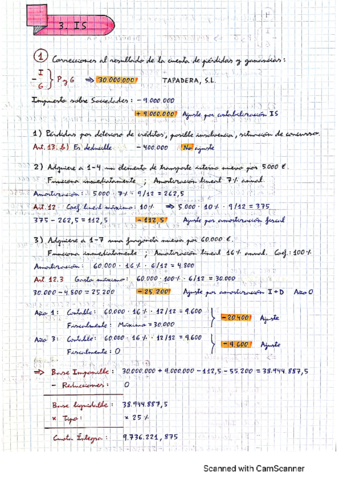 3. IS
1 Correcciones al resultado de la cuenta de pérdidas y ganancias:
- I
G } P y G ⇒ 30.000.000 TAPADERA, S.L.
Impuesto sobre Sociedades: - 9.000.000
+ 9.000.000 Ajuste por contabilización IS
1) Pérdidas por deterioro de créditos, posible insolvencia, situación de concurso.
Art. 13. b) Es deducible - 400.000 No ajuste
2) Adquiere a 1-4 un elemento de transporte interno nuevo por 5000 €.
Funciona inmediatamente ; Amortización lineal 7% anual
Amortización: 5.000 · 7% · 9/12 = 262,5
Art. 12 Coef. lineal máximo: 10% ⇒ 5.000 · 10% · 9/12 = 375
375 - 262,5 = 112,5 - 112,5 Ajuste por amortización fiscal
3) Adquiere a 1-7 una furgoneta nueva por 60.000 €.
Funciona inmediatamente ; Amortización lineal 16% anual. Coef: 100%
Amortización: 60.000 · 16% · 6/12 = 4.800
Art. 12.3 Cuota máxima: 60.000 · 100% · 6/12 = 30.000
30.000 - 4.800 = 25.200 - 25.200 Ajuste por amortización I + D Año 0
Año 1: Contable: 60.000 · 16% · 12/12 = 9.600
Fiscalmente: Máximo = 30.000 } - 20.400 Ajuste
Año 3: Contable: 60.000 · 16% · 12/12 = 9.600
Fiscalmente: 0 } - 9.600 Ajuste
⇒ Base Imponible: 30.000.000 + 9.000.000 - 112,5 - 55.200 = 38.944.887,5
- Reducciones: 0
Base liquidable: 38.944.887,5
× Tipo: × 25%
Cuota Íntegra: 9.736.221,875
Scanned with CamScanner